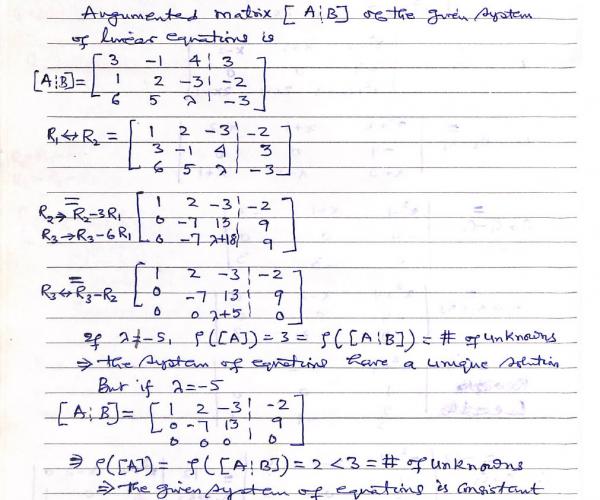 Augumented matrix [A¦B] of the given system
of linear equations is
[A¦B] = [ 3 -1 4 ¦ 3
1 2 -3 ¦ -2
6 5 λ ¦ -3 ]
R₁↔R₂ = [ 1 2 -3 ¦ -2
3 -1 4 ¦ 3
6 5 λ ¦ -3 ]
= [ 1 2 -3 ¦ -2
R₂→R₂-3R₁ 0 -7 13 ¦ 9
R₃→R₃-6R₁ 0 -7 λ+18 ¦ 9 ]
= [ 1 2 -3 ¦ -2
R₃↔R₃-R₂ 0 -7 13 ¦ 9
0 0 λ+5 ¦ 0 ]
If λ≠-5, ρ([A]) = 3 = ρ([A¦B]) = # of unknowns
⇒ the system of equations have a unique solution
But if λ=-5
[A¦B] = [ 1 2 -3 ¦ -2
0 -7 13 ¦ 9
0 0 0 ¦ 0 ]
⇒ ρ([A]) = ρ([A¦B]) = 2 < 3 = # of unknowns
⇒ the given system of equations is consistant